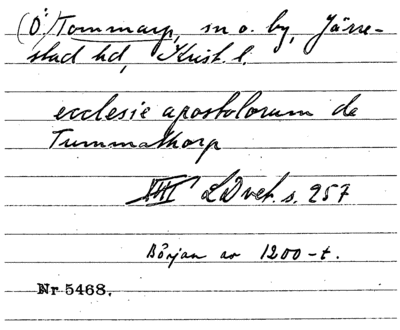 (Ö.) Tommarp, sn o. by, Järre-
stad hd, Krist. l.
ecclesie apostolorum de
Tummathorp
LD vet. s. 257
Början av 1200-t.
Nr 5468.